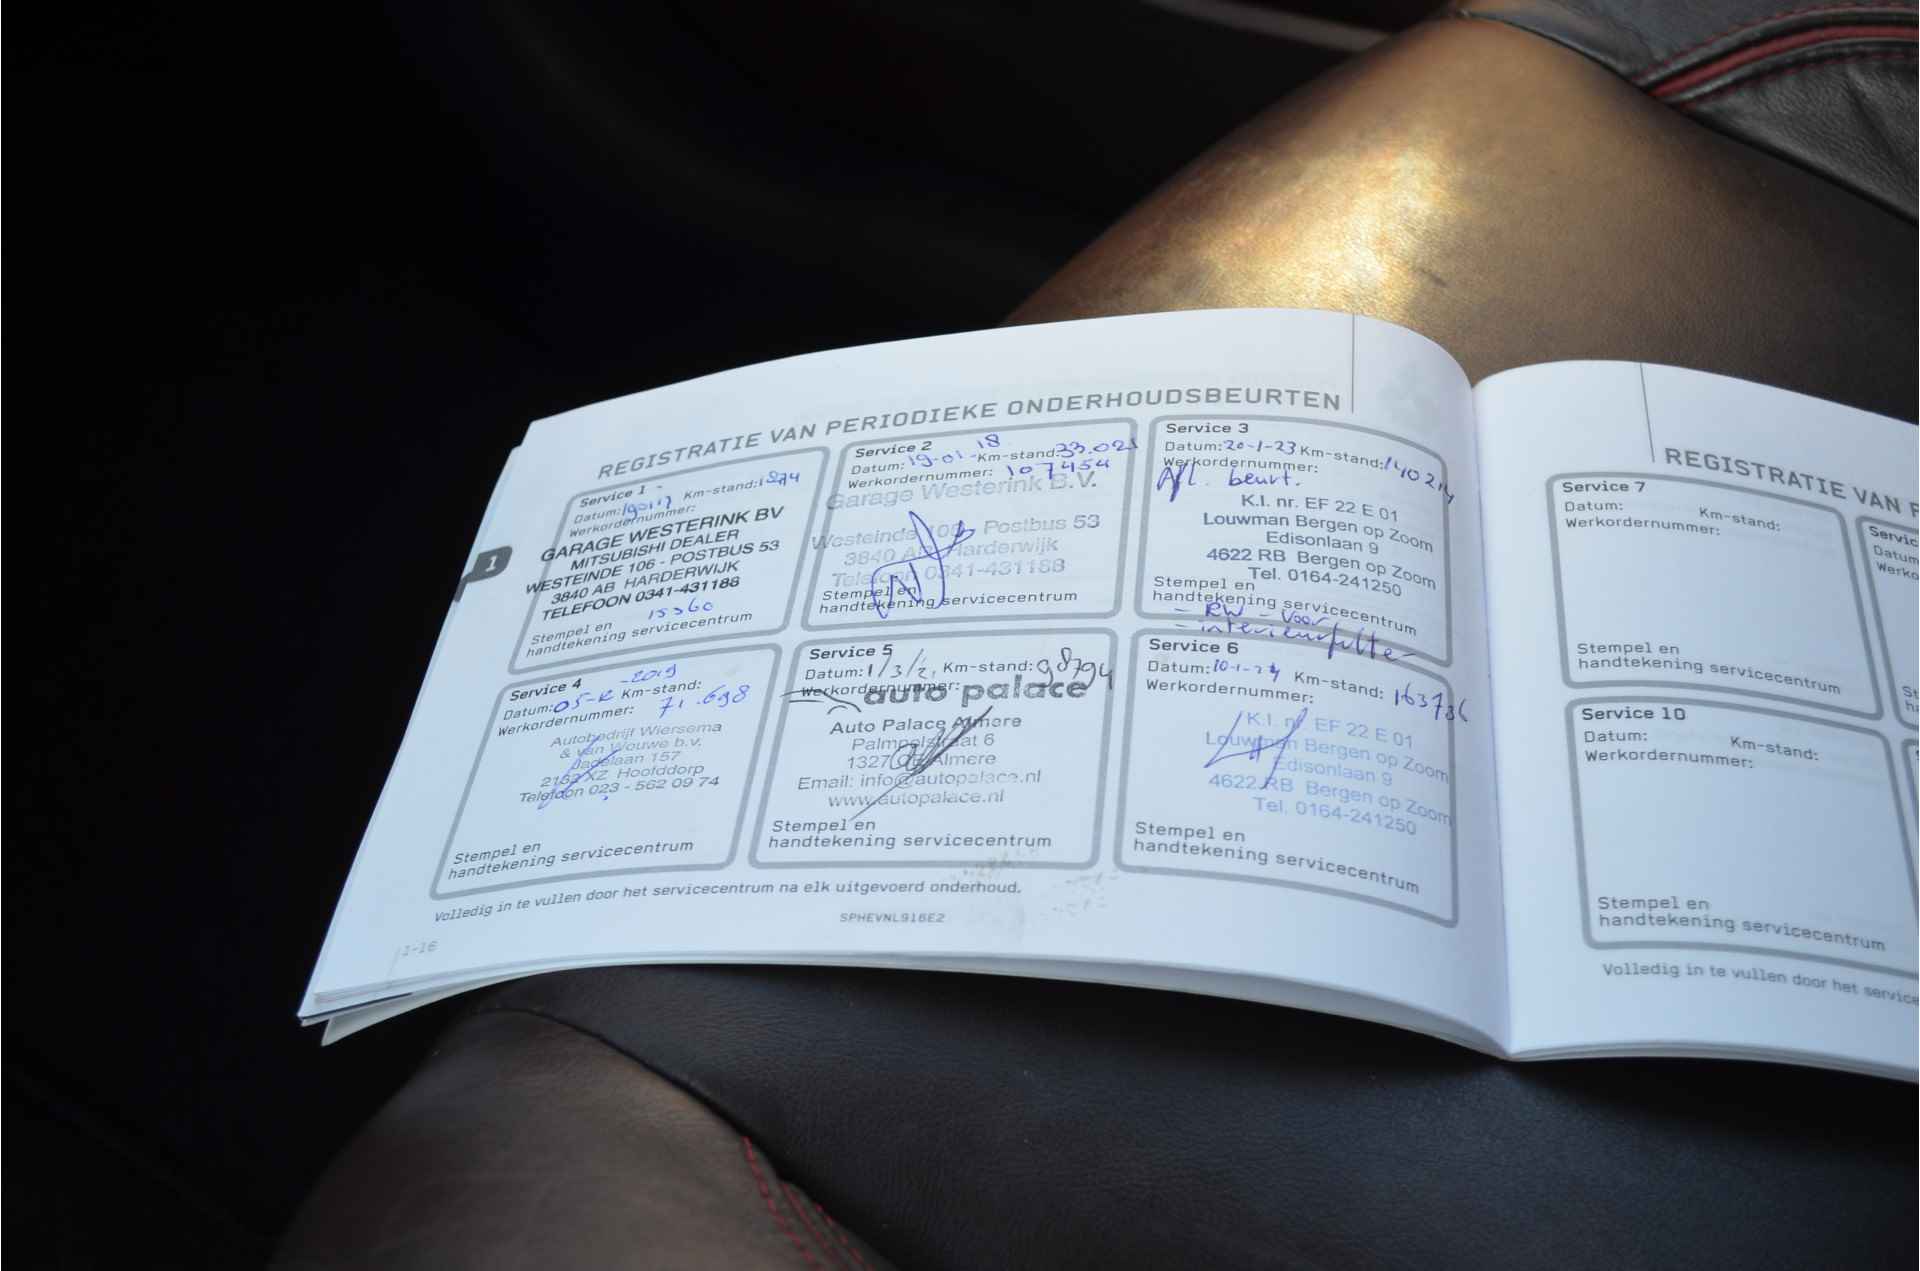 REGISTRATIE VAN PERIODIEKE ONDERHOUDSBEURTEN
1
Service 1
Datum: Km-stand:
Werkordernummer:
GARAGE WESTERINK BV
MITSUBISHI DEALER
WESTEINDE 106 - POSTBUS 53
3840 AB HARDERWIJK
TELEFOON 0341-431188
15360
Stempel en
handtekening servicecentrum
Service 2
Datum: 19-01-18 Km-stand: 33.021
Werkordernummer: 107454
Garage Westerink B.V.
Westeinde 106 Postbus 53
3840 AB Harderwijk
Telefoon 0341-431188
Stempel en
handtekening servicecentrum
Service 3
Datum: 20-1-23 Km-stand: 140214
Werkordernummer:
Afl. beurt.
K.I. nr. EF 22 E 01
Louwman Bergen op Zoom
Edisonlaan 9
4622 RB Bergen op Zoom
Tel. 0164-241250
Stempel en
handtekening servicecentrum
- RW - voor
- interieurfilte-
Service 4
Datum: -2019 Km-stand:
Werkordernummer: 71.698
Autobedrijf Wiersema
& van Wouwe b.v.
Jadelaan 157
2132 XZ Hoofddorp
Telefoon 023 - 562 09 74
Stempel en
handtekening servicecentrum
Service 5
Datum: 1/3/21 Km-stand: 98794
Werkordernummer:
auto palace
Auto Palace Almere
Palmpolstraat 6
1327 Almere
Email: info@autopalace.nl
www.autopalace.nl
Stempel en
handtekening servicecentrum
Service 6
Datum: 10-1-24 Km-stand: 163736
Werkordernummer:
K.I. nr EF 22 E 01
Louwman Bergen op Zoom
Edisonlaan 9
4622 RB Bergen op Zoom
Tel. 0164-241250
Stempel en
handtekening servicecentrum
Volledig in te vullen door het servicecentrum na elk uitgevoerd onderhoud.
SPHEVNL916E2
1-16
REGISTRATIE VAN P
Service 7
Datum: Km-stand:
Werkordernummer:
Stempel en
handtekening servicecentrum
Service 10
Datum: Km-stand:
Werkordernummer:
Stempel en
handtekening servicecentrum
Volledig in te vullen door het service